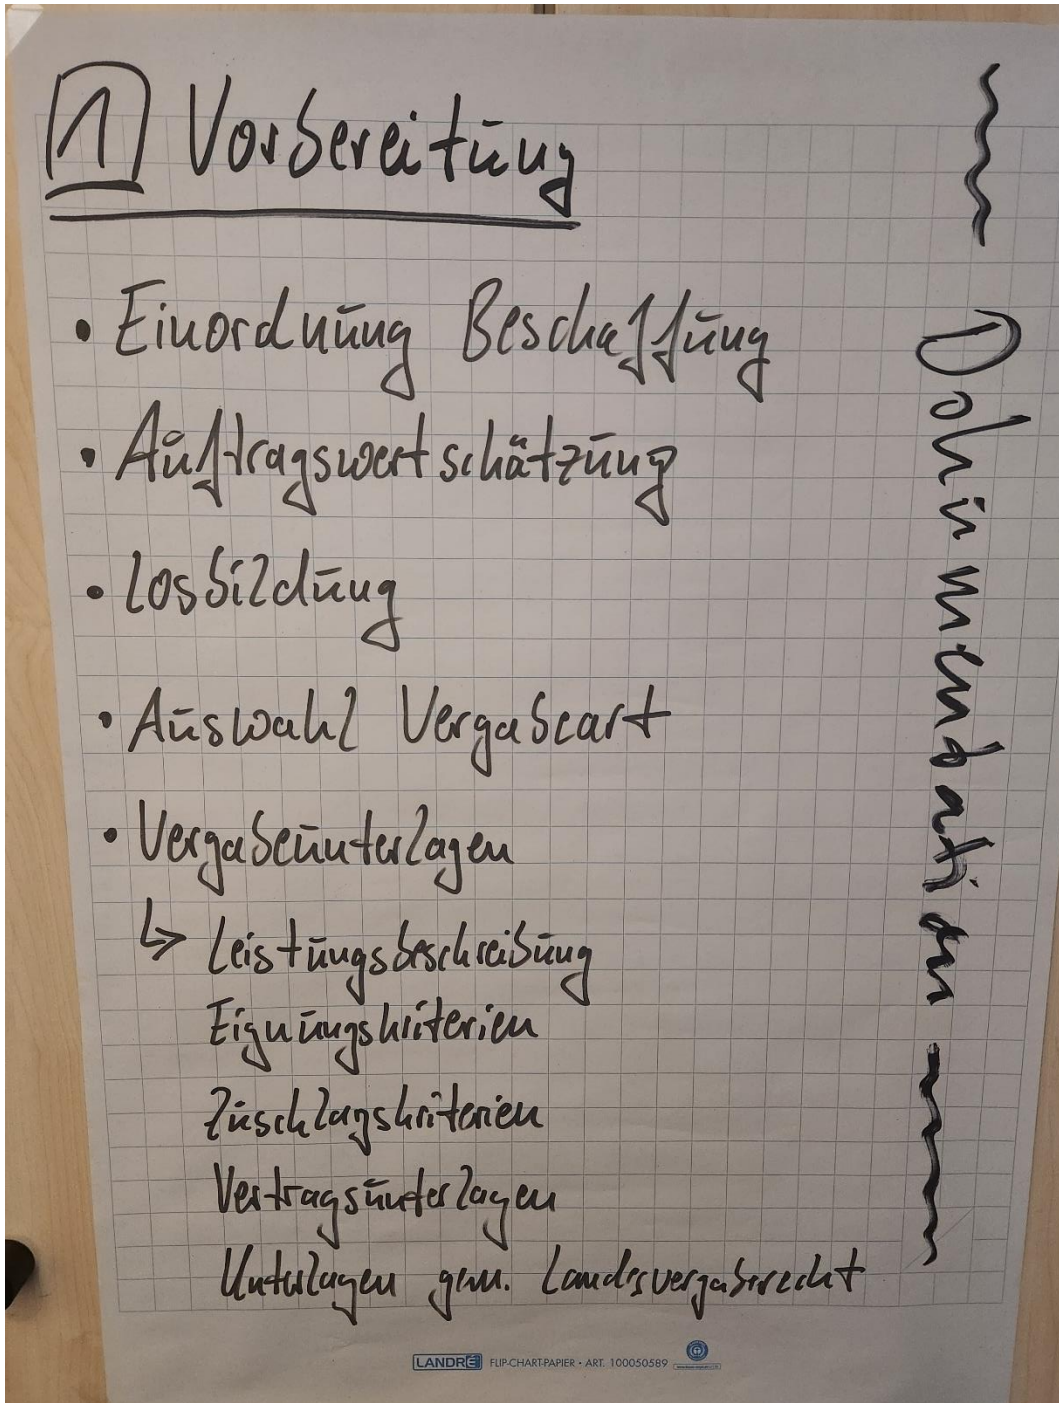 1 Vorbereitung
• Einordnung Beschaffung
• Auftragswertschätzung
• Losbildung
• Auswahl Vergabeart
• Vergabeunterlagen
↳ Leistungsbeschreibung
Eignungskriterien
Zuschlagskriterien
Vertragsunterlagen
Unterlagen gem. Landesvergaberecht
Dokumentation
LANDRÉ FLIP-CHART-PAPIER • ART. 100050589